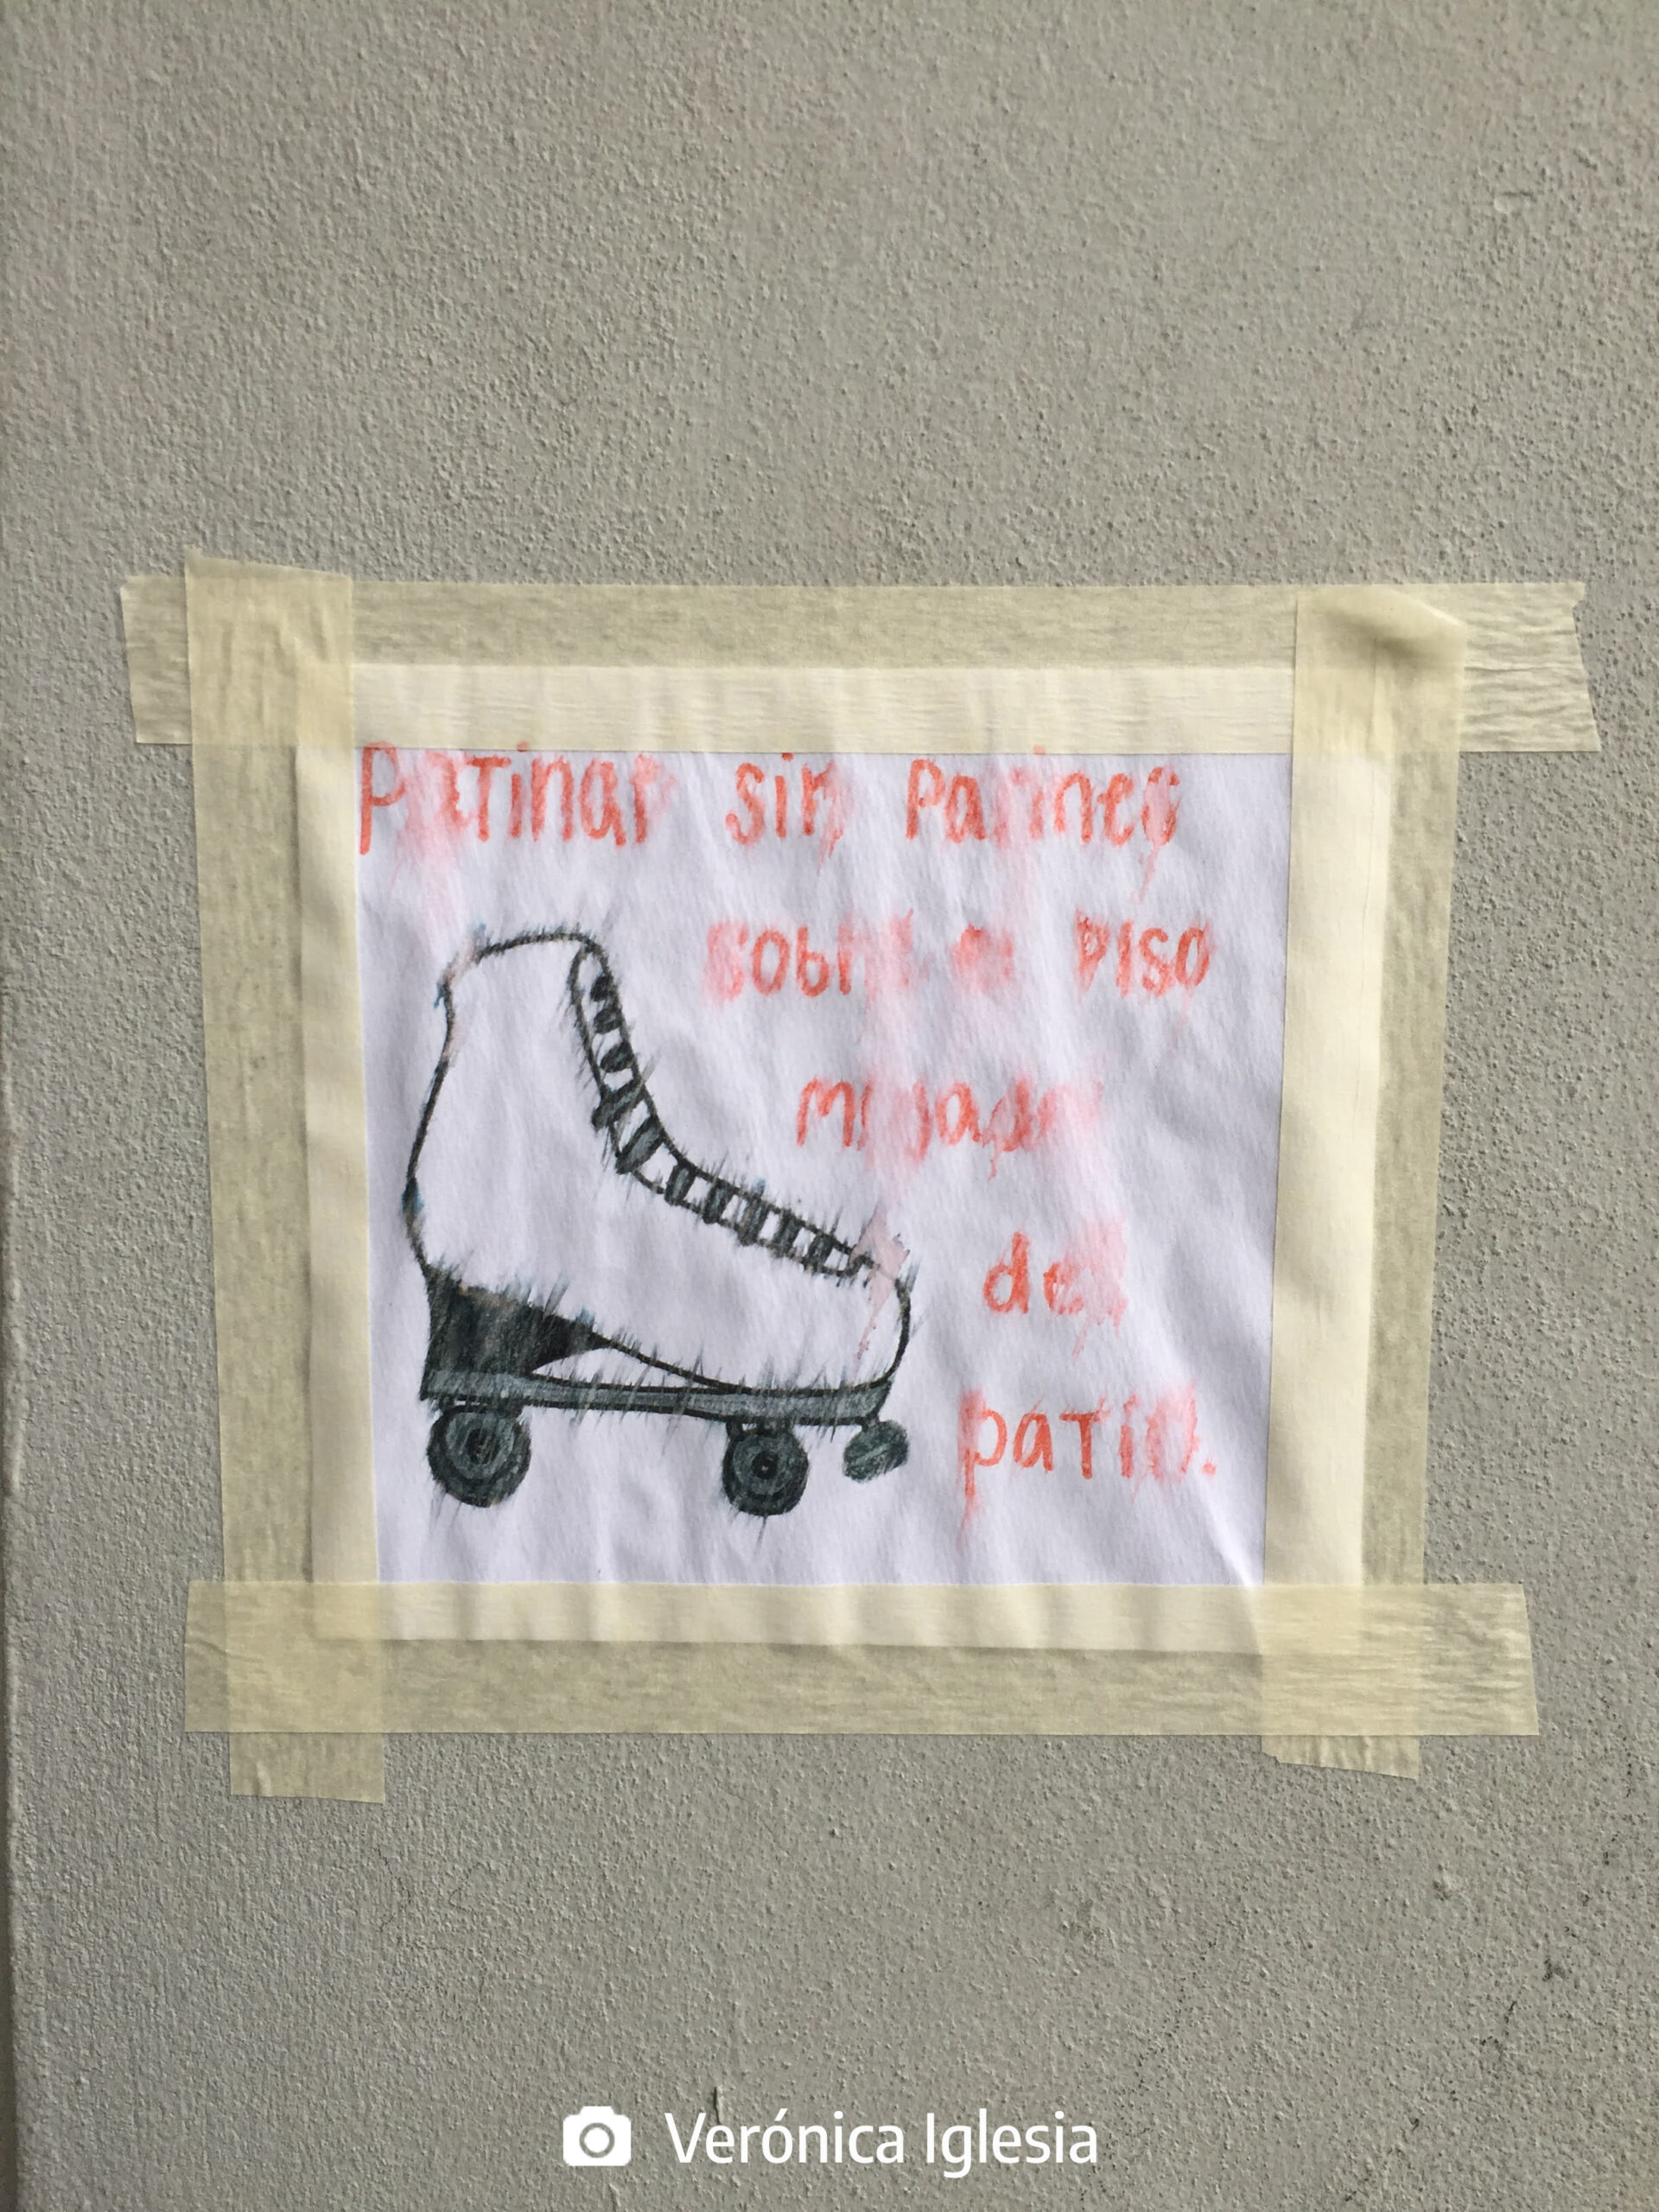 Patinar sin Patines
sobre el PISO
mojado
del
patio.
Verónica Iglesia